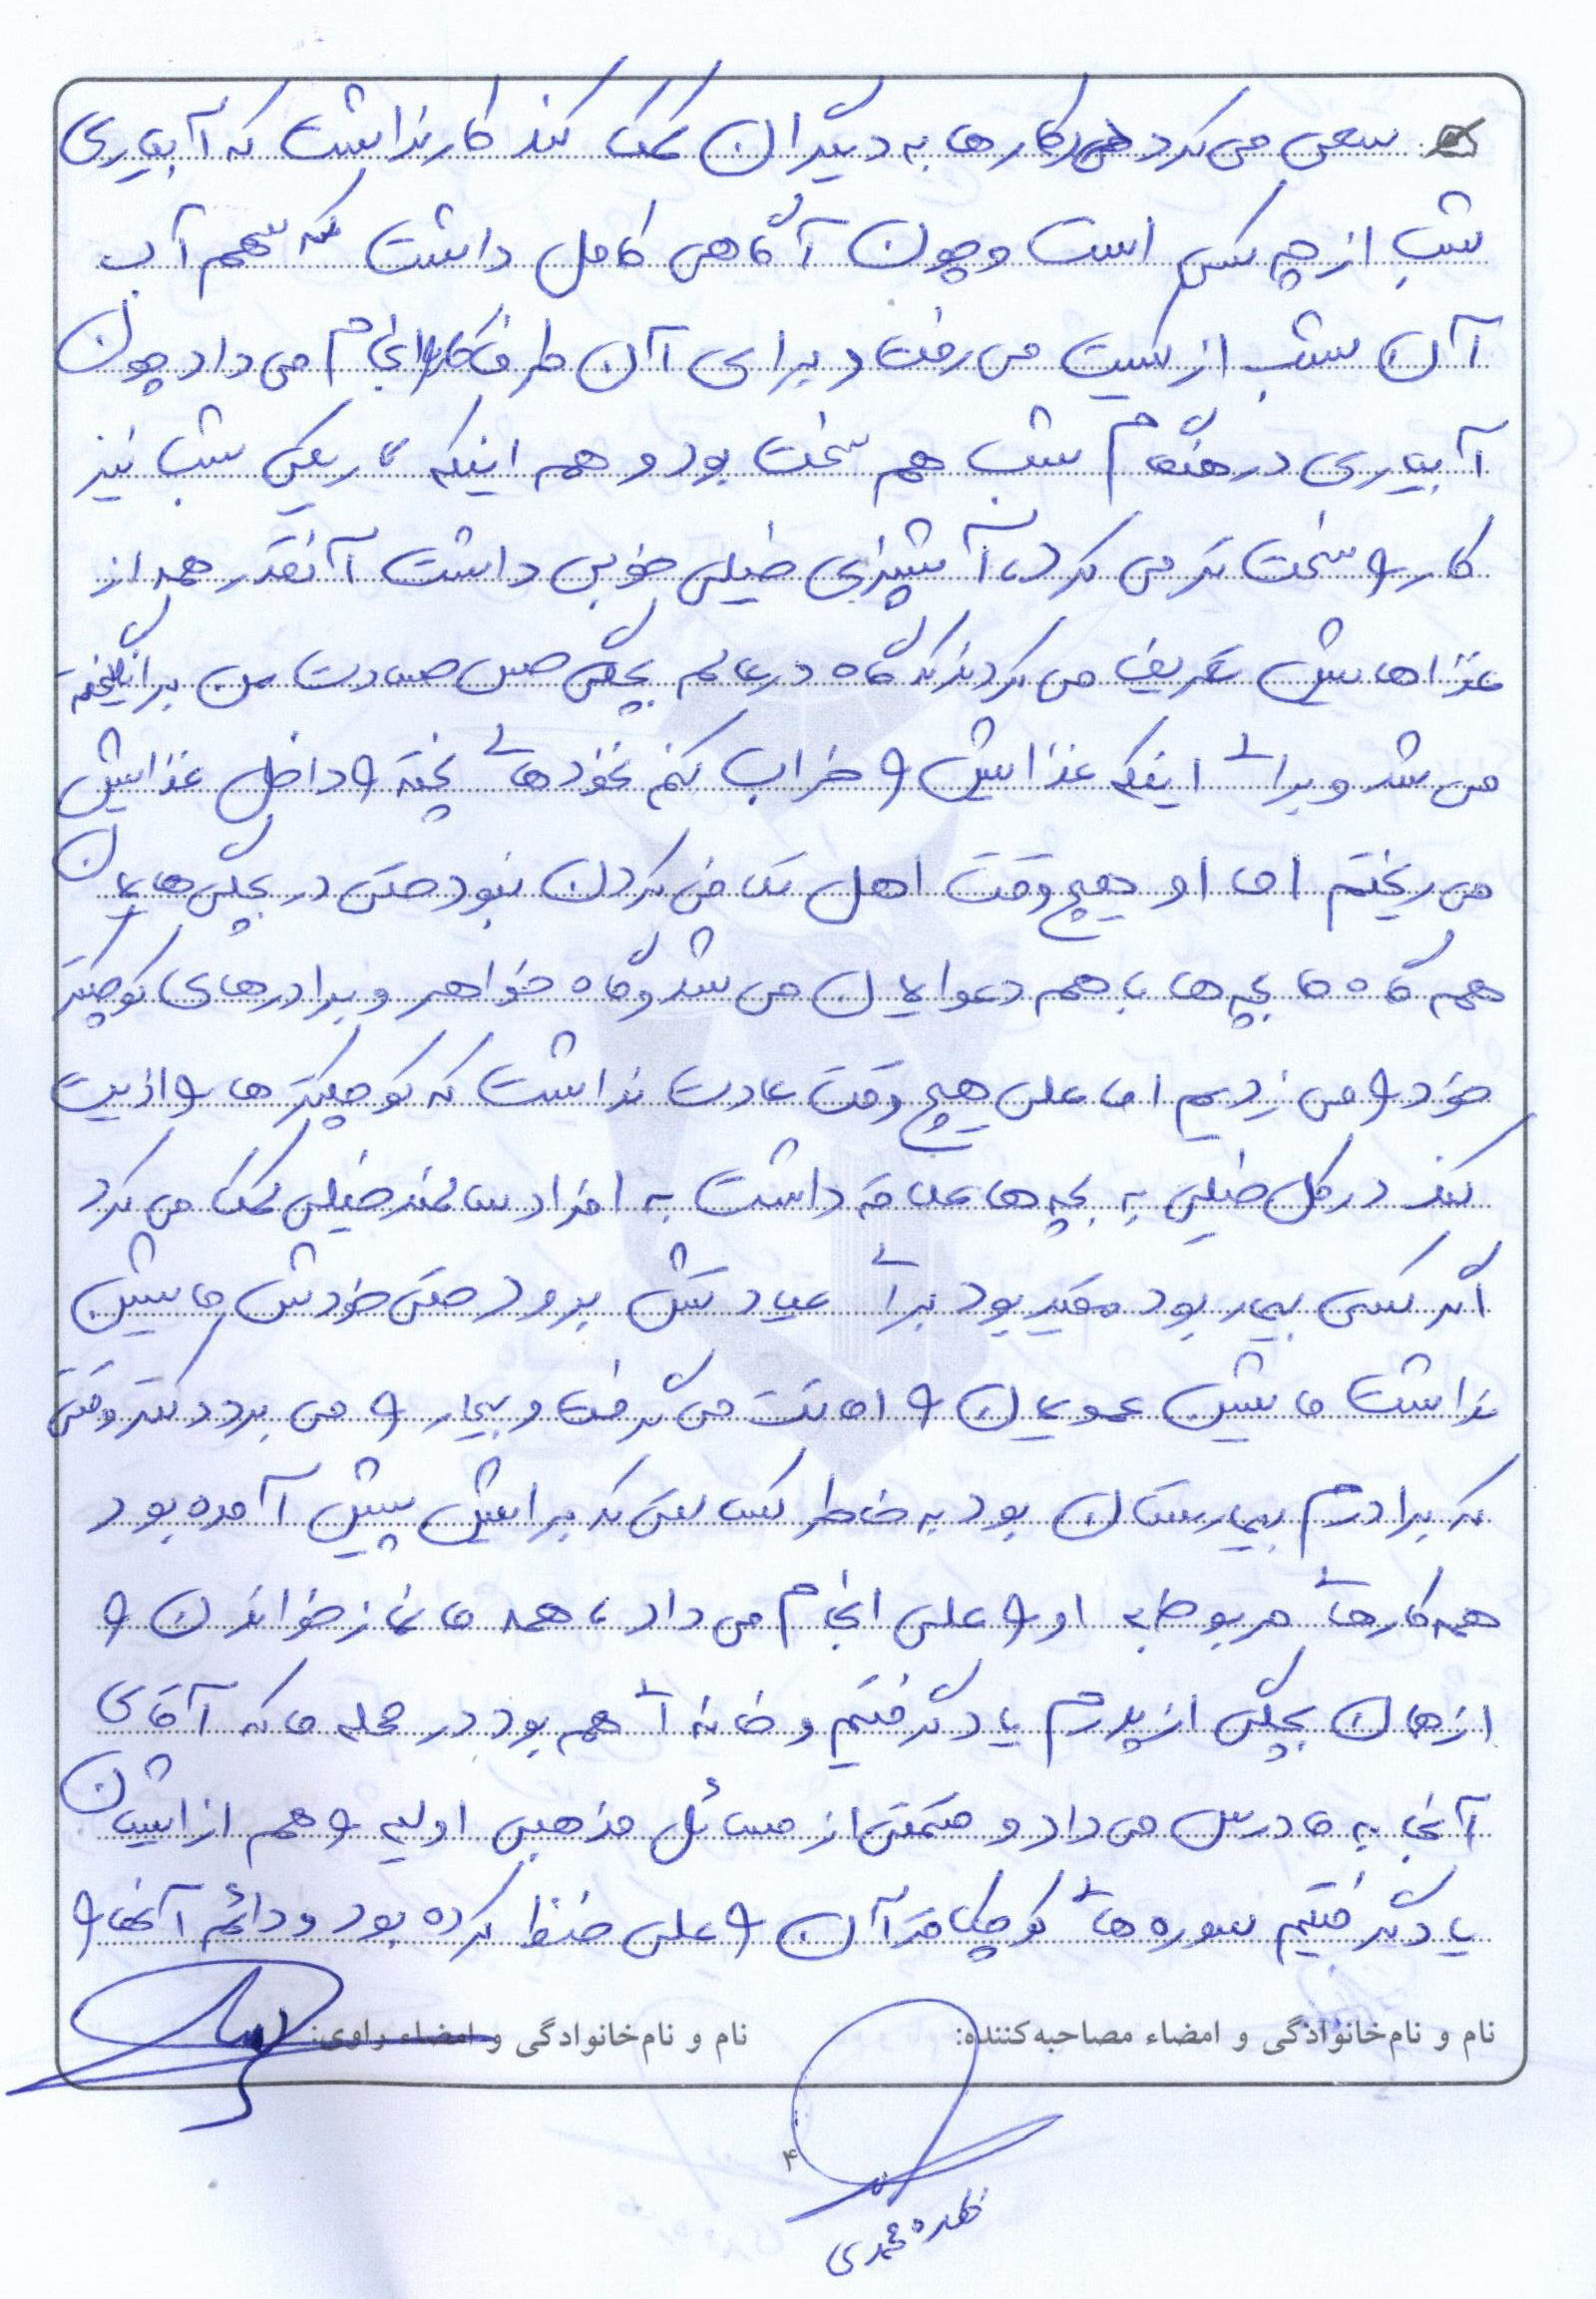 سعی می‌کرد در کارها به دیگران کمک کند کار نداشت که آبیاری
شب از چه کسی است و چون آگاهی کامل داشت که سهم آب
آن شب از کیست می‌رفت و برای آن طرف کار را انجام می‌داد چون
آبیاری در هنگام شب هم سخت بود و هم اینکه تاریکی شب نیز
کار را سخت تر می‌کرد، آشپزی خیلی خوبی داشت آنقدر همه از
غذاهایش تعریف می‌کردند که گاه در عالم بچگی حس حسادت من برانگیخته
می‌شد و برای اینکه غذایش را خراب کنم نخودهای پخته را داخل غذایش
می‌ریختم اما او هیچ وقت اهل تلافی کردن نبود حتی در بچگی‌هایمان
همه گاه ما بچه‌ها با هم دعوایمان می‌شد و گاه خواهر و برادرهای کوچکتر
خود را می‌زدیم اما علی هیچ وقت عادت نداشت که کوچکترها را اذیت
کند در کل خیلی به بچه‌ها علاقه داشت به افراد سالمند خیلی کمک می‌کرد
اگر کسی بیمار بود مقید بود برای عیادتش برود حتی خودش ماشین
نداشت ماشین عمویمان را امانت می‌گرفت و بیمار را می‌برد دکتر وقتی
که برادرم بیمارستان بود به خاطر کسالتی که برایش پیش آمده بود
همه کارهای مربوط به او را علی انجام می‌داد، همه ما نماز خواندن را
از همان بچگی از پدرم یاد گرفتیم و خانه‌ای هم بود در محله ما که آقای
آنجا به ما درس می‌داد و قسمتی از مسائل مذهبی اولیه را هم از ایشان
یاد گرفتیم سوره‌های کوچک قرآن را علی حفظ کرده بود و دائم آنها را
نام و نام‌خانوادگی و امضاء مصاحبه‌کننده: نام و نام‌خانوادگی و امضاء راوی:
۴
محمدی